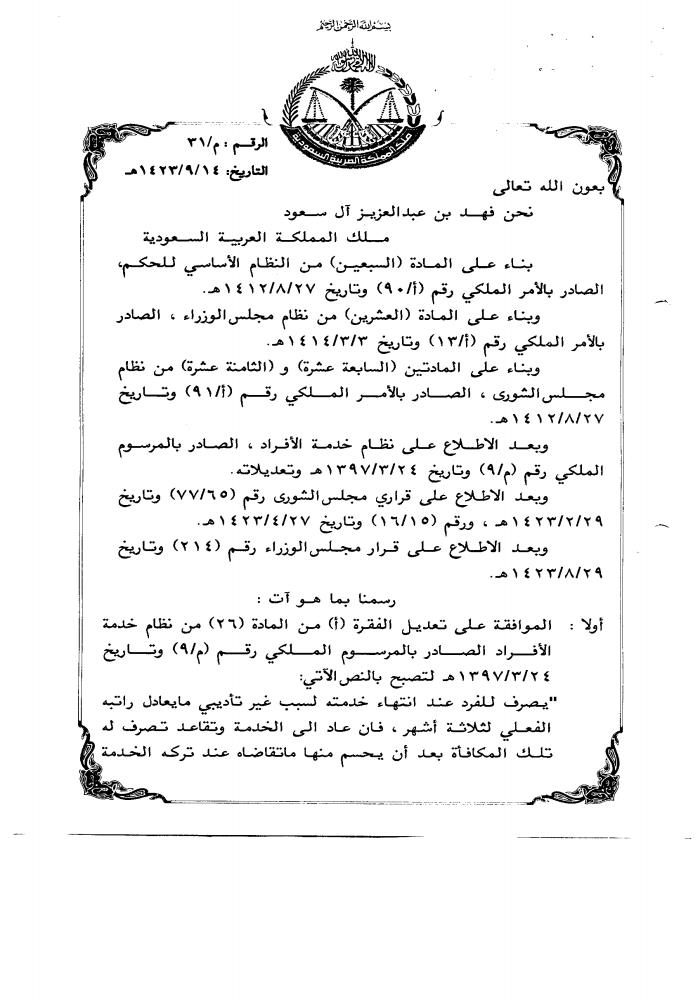 بسم الله الرحمن الرحيم
لا إله إلا الله محمد رسول الله
ملك المملكة العربية السعودية
الرقم : م/٣١
التاريخ: ١٤٢٣/٩/١٤هـ
بعون الله تعالى
نحن فهد بن عبدالعزيز آل سعود
ملك المملكة العربية السعودية
بناء على المادة (السبعين) من النظام الأساسي للحكم،
الصادر بالأمر الملكي رقم (أ/٩٠) وتاريخ ١٤١٢/٨/٢٧هـ.
وبناء على المادة (العشرين) من نظام مجلس الوزراء ، الصادر
بالأمر الملكي رقم (أ/١٣) وتاريخ ١٤١٤/٣/٣هـ.
وبناء على المادتين (السابعة عشرة) و (الثامنة عشرة) من نظام
مجلس الشورى ، الصادر بالأمر الملكي رقم (أ/٩١) وتاريخ
١٤١٢/٨/٢٧هـ.
وبعد الاطلاع على نظام خدمة الأفراد ، الصادر بالمرسوم
الملكي رقم (م/٩) وتاريخ ١٣٩٧/٣/٢٤هـ وتعديلاته.
وبعد الاطلاع على قراري مجلس الشورى رقم (٧٧/٦٥) وتاريخ
١٤٢٣/٢/٢٩هـ ، ورقم (١٦/١٥) وتاريخ ١٤٢٣/٤/٢٧هـ.
وبعد الاطلاع على قرار مجلس الوزراء رقم (٢١٤) وتاريخ
١٤٢٣/٨/٢٩هـ.
رسمنا بما هو آت :
أولا : الموافقة على تعديل الفقرة (أ) من المادة (٢٦) من نظام خدمة
الأفراد الصادر بالمرسوم الملكي رقم (م/٩) وتاريخ
١٣٩٧/٣/٢٤هـ لتصبح بالنص الآتي:
"يصرف للفرد عند انتهاء خدمته لسبب غير تأديبي مايعادل راتبه
الفعلي لثلاثة أشهر ، فان عاد الى الخدمة وتقاعد تصرف له
تلك المكافأة بعد أن يحسم منها ماتقاضاه عند تركه الخدمة